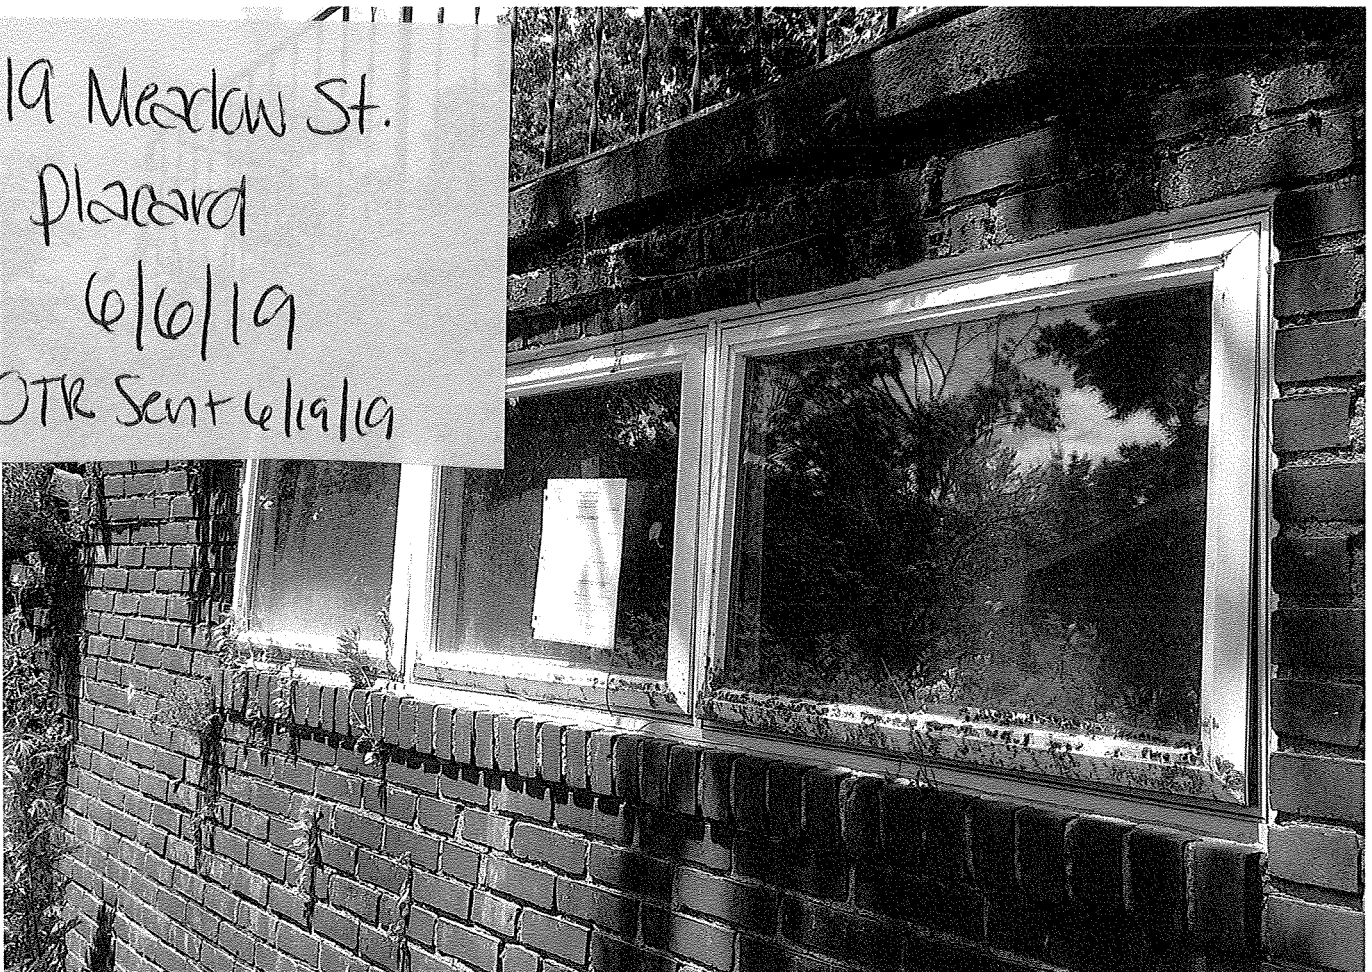 19 Meadow St.
Placard
6/6/19
OTR Sent 6/19/19